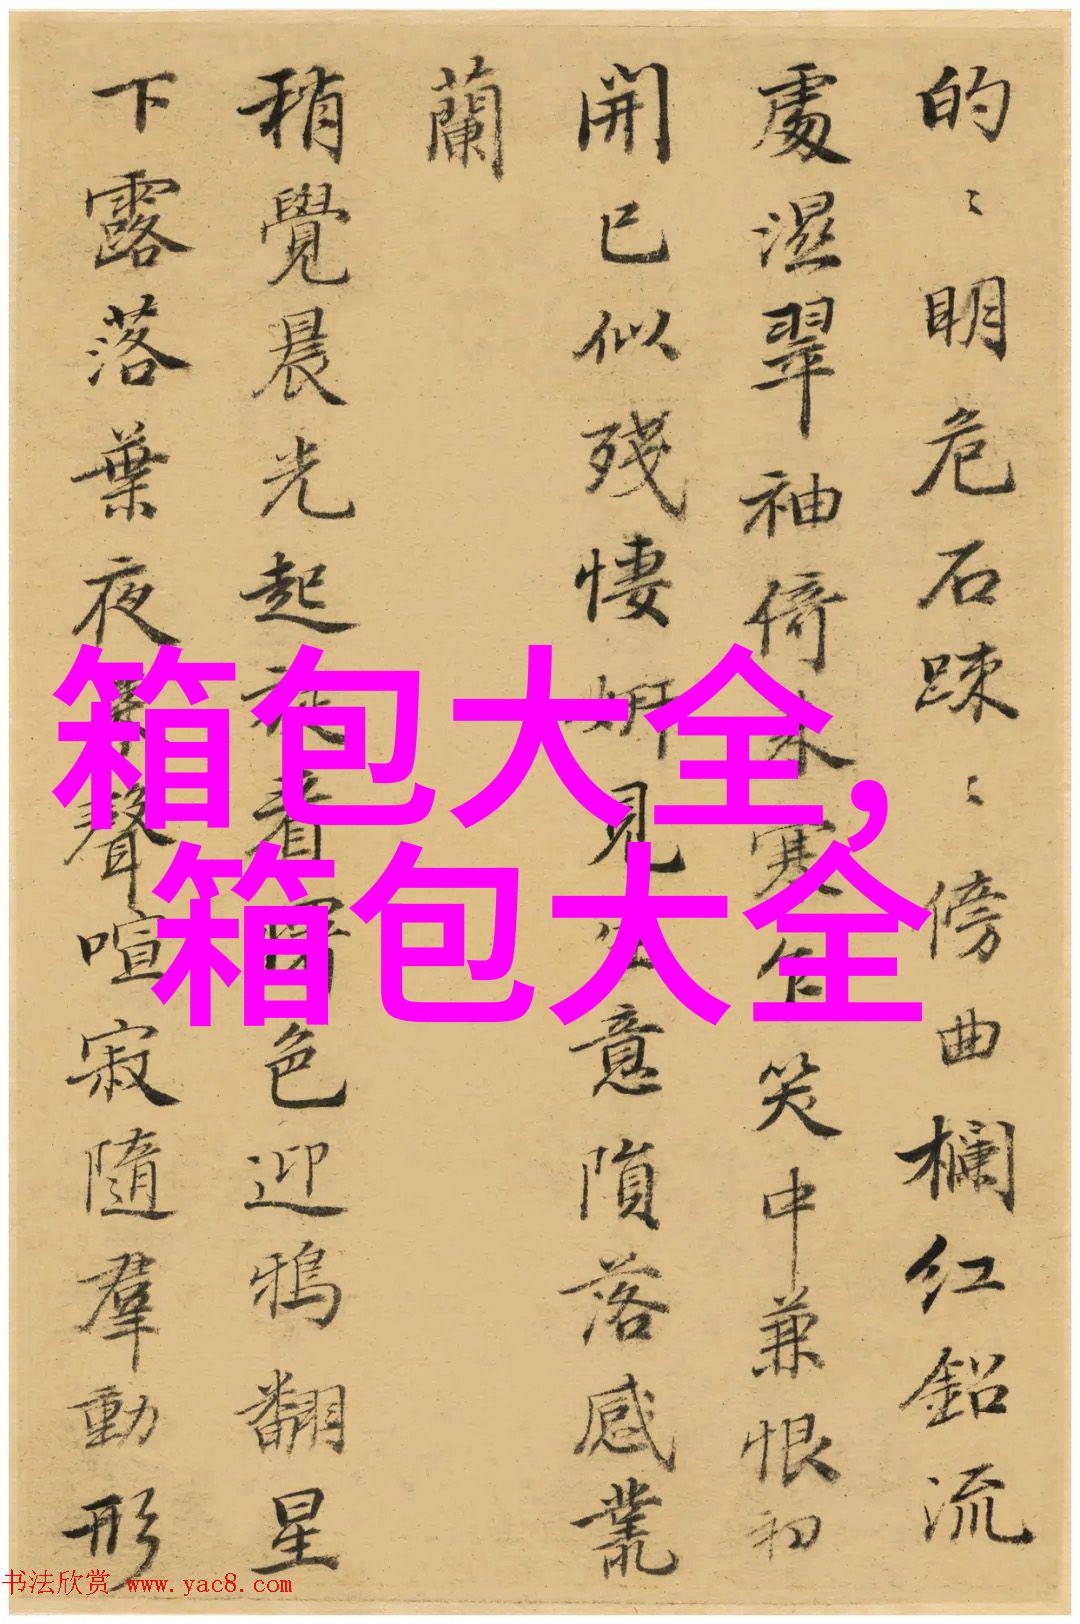 的〻明危石踈〻傍曲欄红鉛流
處濕翠袖倚来寒乍笑中兼恨初
開已似殘悽妍見生意隕落感叢
蘭
稍覺晨光起看色迎鴉翻星
下露落葉夜聲喧寂隨羣動形
箱包大全,
箱包大全
书法欣赏 www.yac8.com